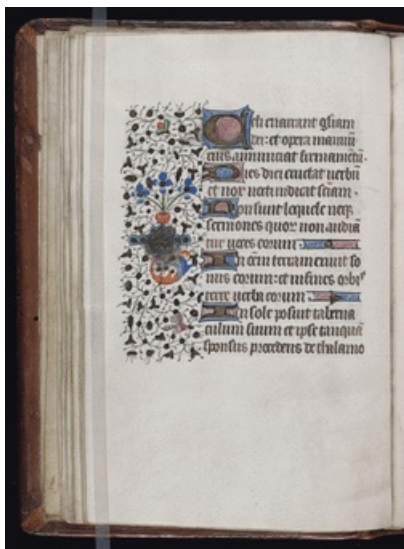 Celi enarrant gl̃iam
dei: et opera manuũ
eius annunciat firmamẽtũ.
Dies diei eructat verbũ
et nox nocti indicat sciam.
Non sunt loquele neq̧
sermones quor non audiã
tur voces eorum.
In oẽm terram exivit so
nus eorum: et in fines orbis
terre verba eorum.
In sole posuit taberna
culum suum et ipse tanquã
sponsus procedens de thalamo